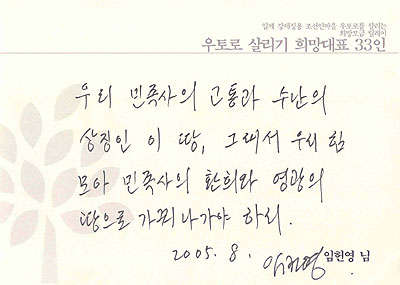 일제 강제징용 조선인마을 우토로를 살리는
희망모금 릴레이
우토로 살리기 희망대표 33인
우리 민족사의 고통과 수난의
상징인 이 땅, 그래서 우리 힘
모아 민족사의 환희와 영광의
땅으로 가꿔나가야 하리.
2005. 8. 임헌영 임헌영 님